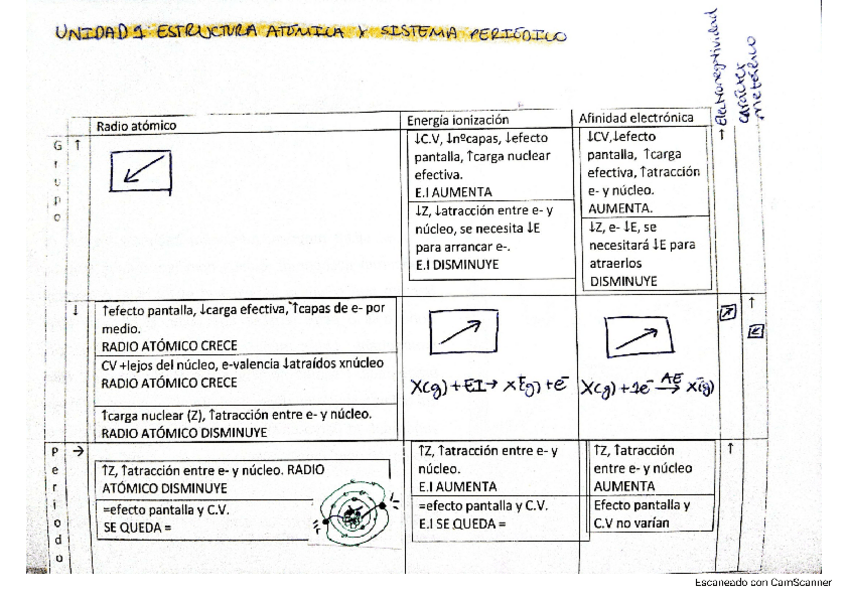 UNIDAD 1 ESTRUCTURA ATÓMICA Y SISTEMA PERIÓDICO
Electronegatividad
carácter
metálico
Radio atómico
Energía ionización
Afinidad electrónica
Grupo
↑
↓C.V, ↓nºcapas, ↓efecto
pantalla, ↑carga nuclear
efectiva.
E.I AUMENTA
↓Z, ↓atracción entre e- y
núcleo, se necesita ↓E
para arrancar e-.
E.I DISMINUYE
↓CV,↓efecto
pantalla, ↑carga
efectiva, ↑atracción
e- y núcleo.
AUMENTA.
↓Z, e- ↓E, se
necesitará ↓E para
atraerlos
DISMINUYE
↑
↓
↑efecto pantalla, ↓carga efectiva, ↑capas de e- por
medio.
RADIO ATÓMICO CRECE
CV +lejos del núcleo, e-valencia ↓atraídos xnúcleo
RADIO ATÓMICO CRECE
↑carga nuclear (Z), ↑atracción entre e- y núcleo.
RADIO ATÓMICO DISMINUYE
X(g) + EI → X(g) + e⁻
X(g) + 1e⁻ AE→ X⁻(g)
↑
Periodo
→
↑Z, ↑atracción entre e- y núcleo. RADIO
ATÓMICO DISMINUYE
=efecto pantalla y C.V.
SE QUEDA =
↑Z, ↑atracción entre e- y
núcleo.
E.I AUMENTA
=efecto pantalla y C.V.
E.I SE QUEDA =
↑Z, ↑atracción
entre e- y núcleo
AUMENTA
Efecto pantalla y
C.V no varían
↑
Escaneado con CamScanner